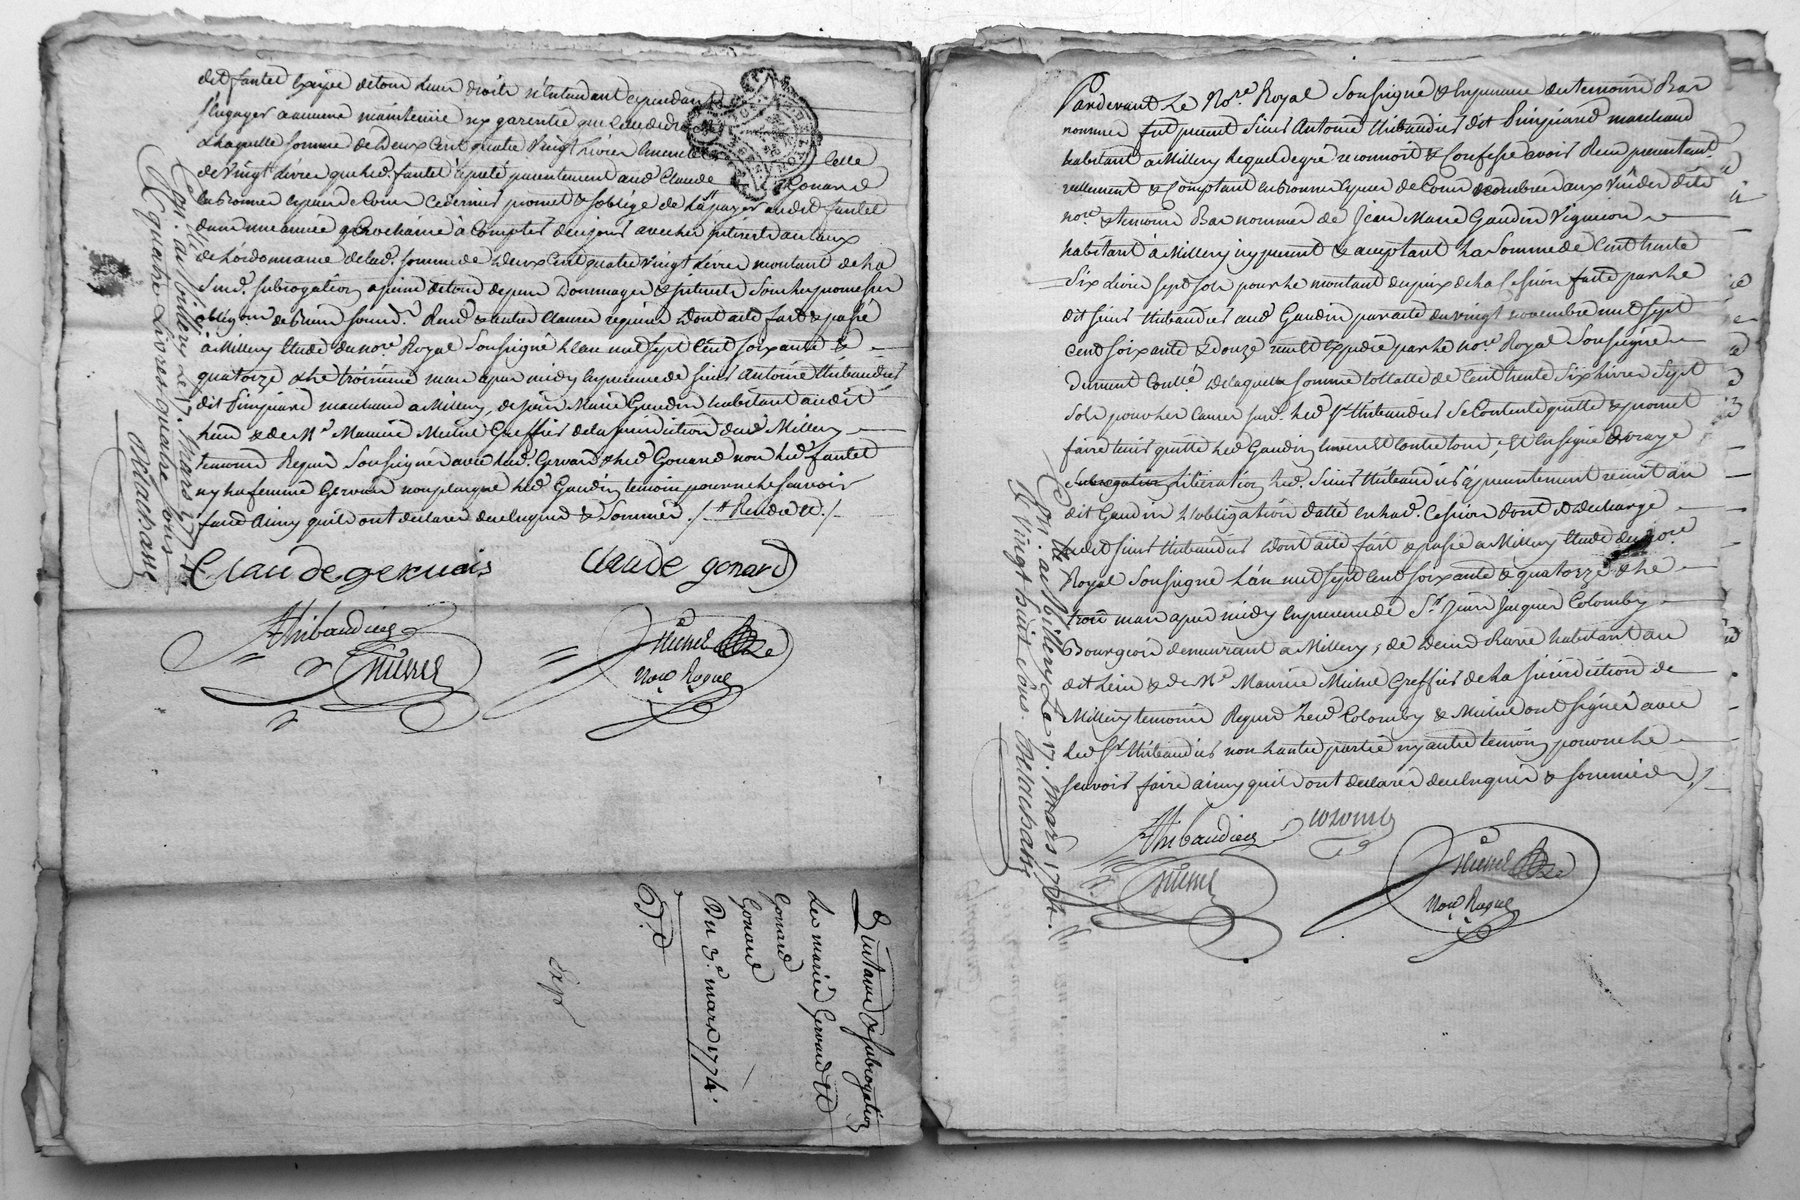 dit fantet Exercée detoun Leurs droits n'Entendant cependant
s'Engager a aucune maintenüe ny garentie que de leur
Laquelle somme de Deux Cent quatre Vingt Livres Ensemble Celle
de Vingt Livres que led. fantet a preté presentement aud Claude Gonard
En bonnes Especes de Cour Ce dernier promet & s'oblige de La payer audit fantet
dans une année prochaine à Compter de ce jour avec les interets au taux
de L'ordonnance de lad. somme de Deux Cent quatre Vingt Livres montant de La
Susd. Subrogation, a peine de tous depens Dommages & interets sous les promesses
oblig.on de biens soum.on Renon & autres Clauses requises Dont acte fait & passé
à Millery Etude du no.re Royal Soussigné L'an mil sept Cent soixante &
quatorze & le troisieme mars apres midy En presence de sieur Antoine Thibaudier
dit marchand a Millery, de Jean Marie Gaudin habitant audit
Lieu & de M.e Maurice Michel Greffier de la jurisdiction dud. Millery
temoins Requis Soussignés avec led. Gervais & led. Gonard non led. fantet
ny la femme Gervais non plus que led. Gaudin temoin pour ne le scavoir
faire Ainsy quils ont declarés de ce Enquis & Sommés ./.
Claude gervais Claude gonard
Thibaudier
Michel
No.re Royal
Con.lé a Millery Le 17. Mars 1774
R quatre Livres quatre sous
Delachasse
Quittance & Subrogation
Les mariés Gervais &
Gonard
Gonard
Du 3.e mars 1774.
Exp
Pardevant Le No.re Royal Soussigné & En presence des temoins Bas
nommés fut present sieur Antoine Thibaudier dit marchand
habitant a Millery Lequel de gré reconnoit & Confesse avoir Reçu presentement
reellement & Comptant En bonnes Especes de Cour nombrées aux Vües dud.
no.re & temoins Bas nommés de Jean Marie Gaudin Vigneron
habitant a Millery icy present & acceptant La Somme de Cent trente
Six Livres sept sols pour le montant du prix de la Cession faite par le
dit sieur Thibaudier aud Gaudin par acte du vingt novembre mil sept
cent soixante & douze reçu & Expedié par le no.re Royal Soussigné
Dument Conllé De laquelle somme tottalle de Cent trente Six Livres Sept
Sols pour les Causes susd. led S.r Thibaudier se Contente quitte & promet
faire tenir quitte led Gaudin Envers & Contre tous, & En signe de vraye
Subrogation Liberation, led. sieur Thibaudier a presentement remit au
dit Gaudin L'obligation dattée En lad. Cession dont il decharge
ledit sieur Thibaudier Dont acte fait & passé a Millery Etude du no.re
Royal Soussigné L'an mil sept cent soixante & quatorze & le
trois mars apres midy En presence de S.r Jean Jacques Colomby
Bourgeois demeurant a Millery, de Denis habitant au
dit Lieu & de M.e Maurice Michel Greffier de la jurisdiction de
Millery temoins Requis Lesd Colomby & Michel ont signés avec
led S.r Thibaudier non l'autre partie ny autre temoin pour ne le
scavoir faire ainsy quils ont declarés de ce Enquis & sommés ./.
Thibaudier Colomby
Michel
No.re Royal
Con.lé a Millery Le 17. Mars 1774.
R Vingt huit sous. Delachasse